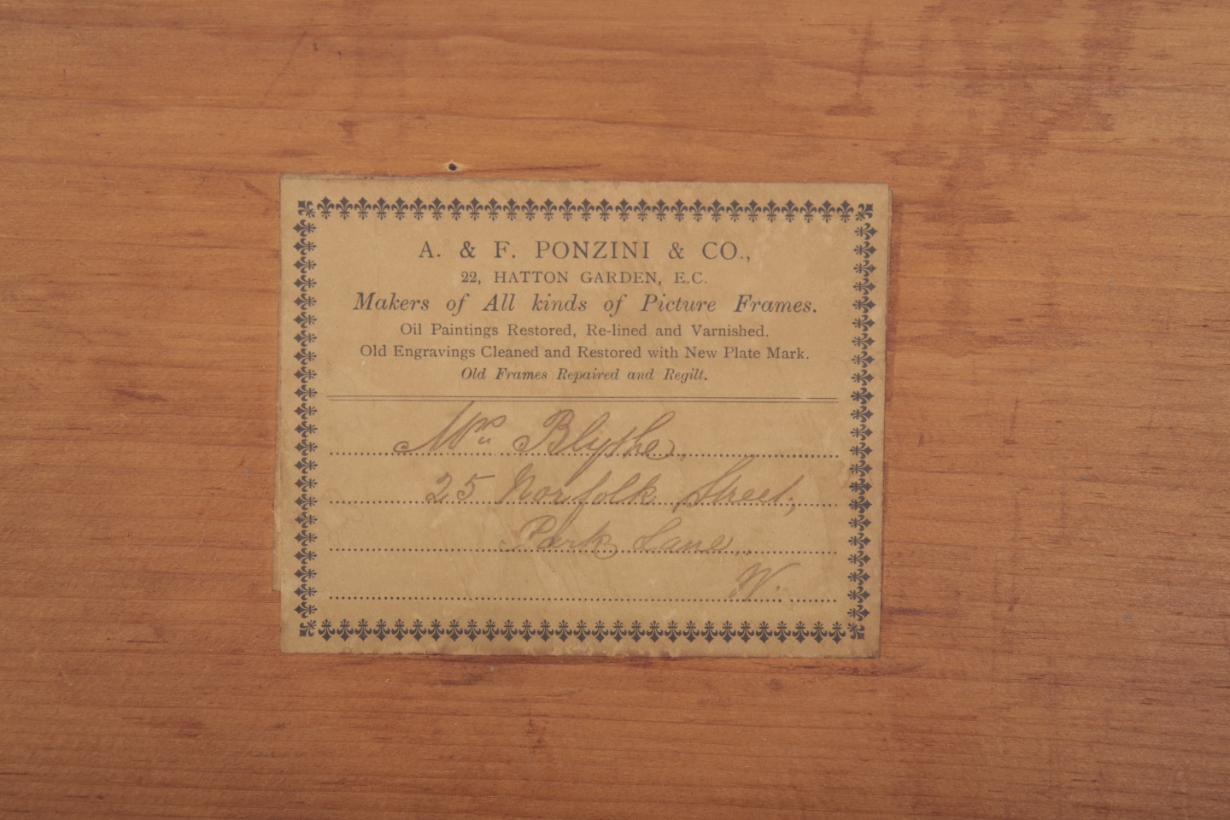 A. & F. PONZINI & CO.,
22, HATTON GARDEN, E.C.
Makers of All kinds of Picture Frames.
Oil Paintings Restored, Re-lined and Varnished.
Old Engravings Cleaned and Restored with New Plate Mark.
Old Frames Repaired and Regilt.
Mrs Blythe,
25 Norfolk Street,
Park Lane,
W.